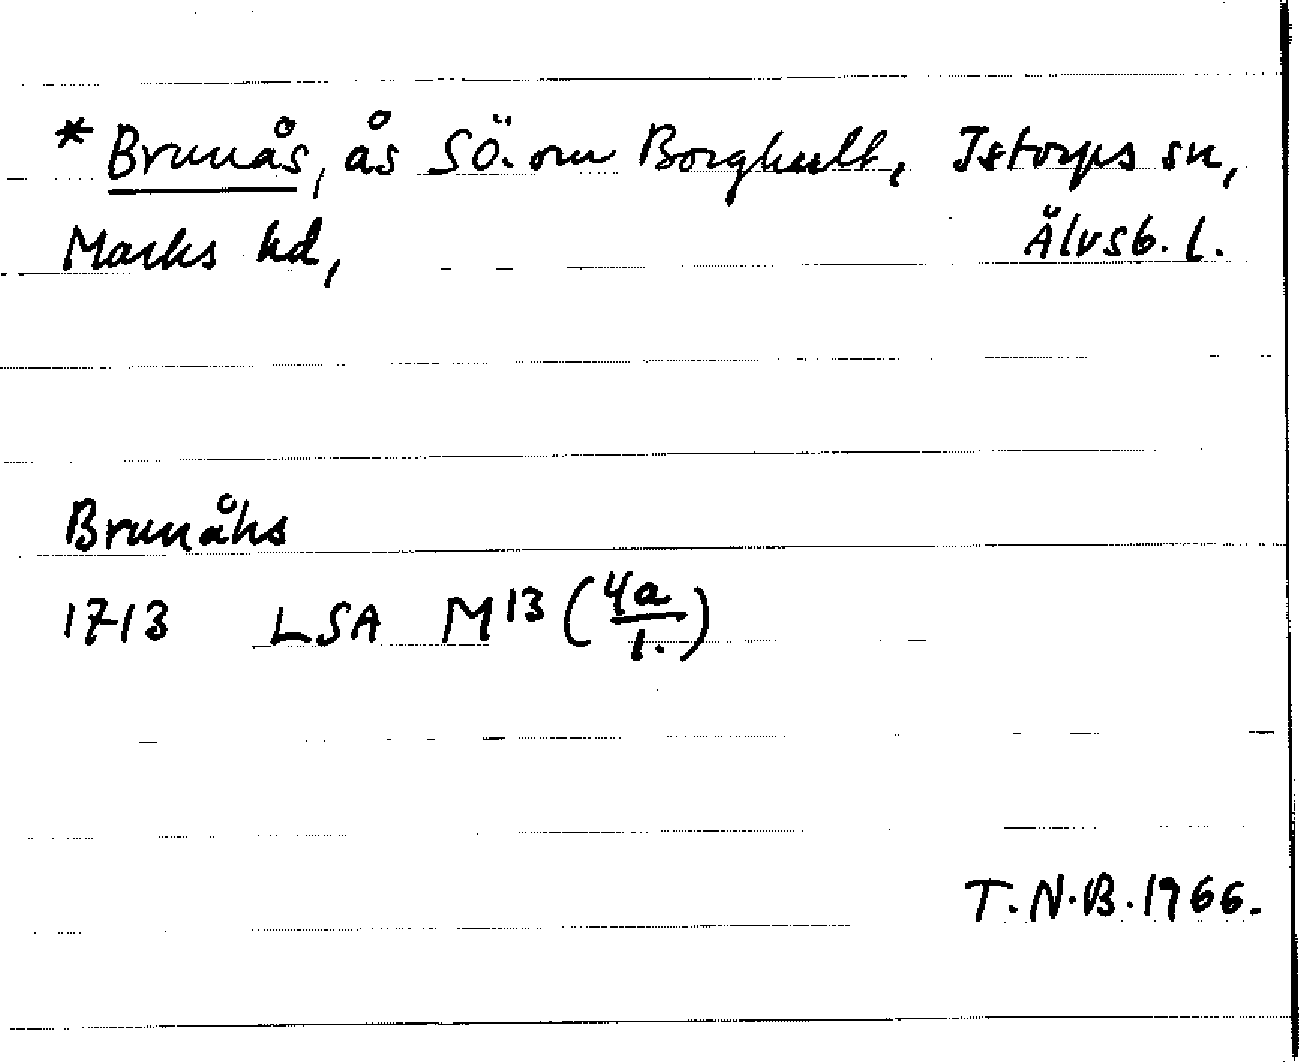 * Brunås, ås SÖ. om Borghult, Istorps sn,
Marks hd, Älvsb. l.
Brunåhs
1713 LSA M13 (4a/1.)
T.N.B. 1966.